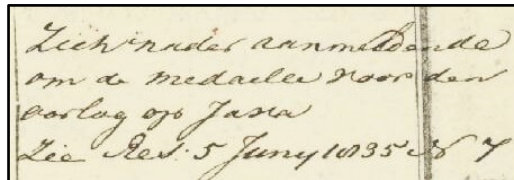 Zich nader aanmeldende
om de medaelle voor den
oorlog op Java
Zie Res. 5 Juny 1835 N 7